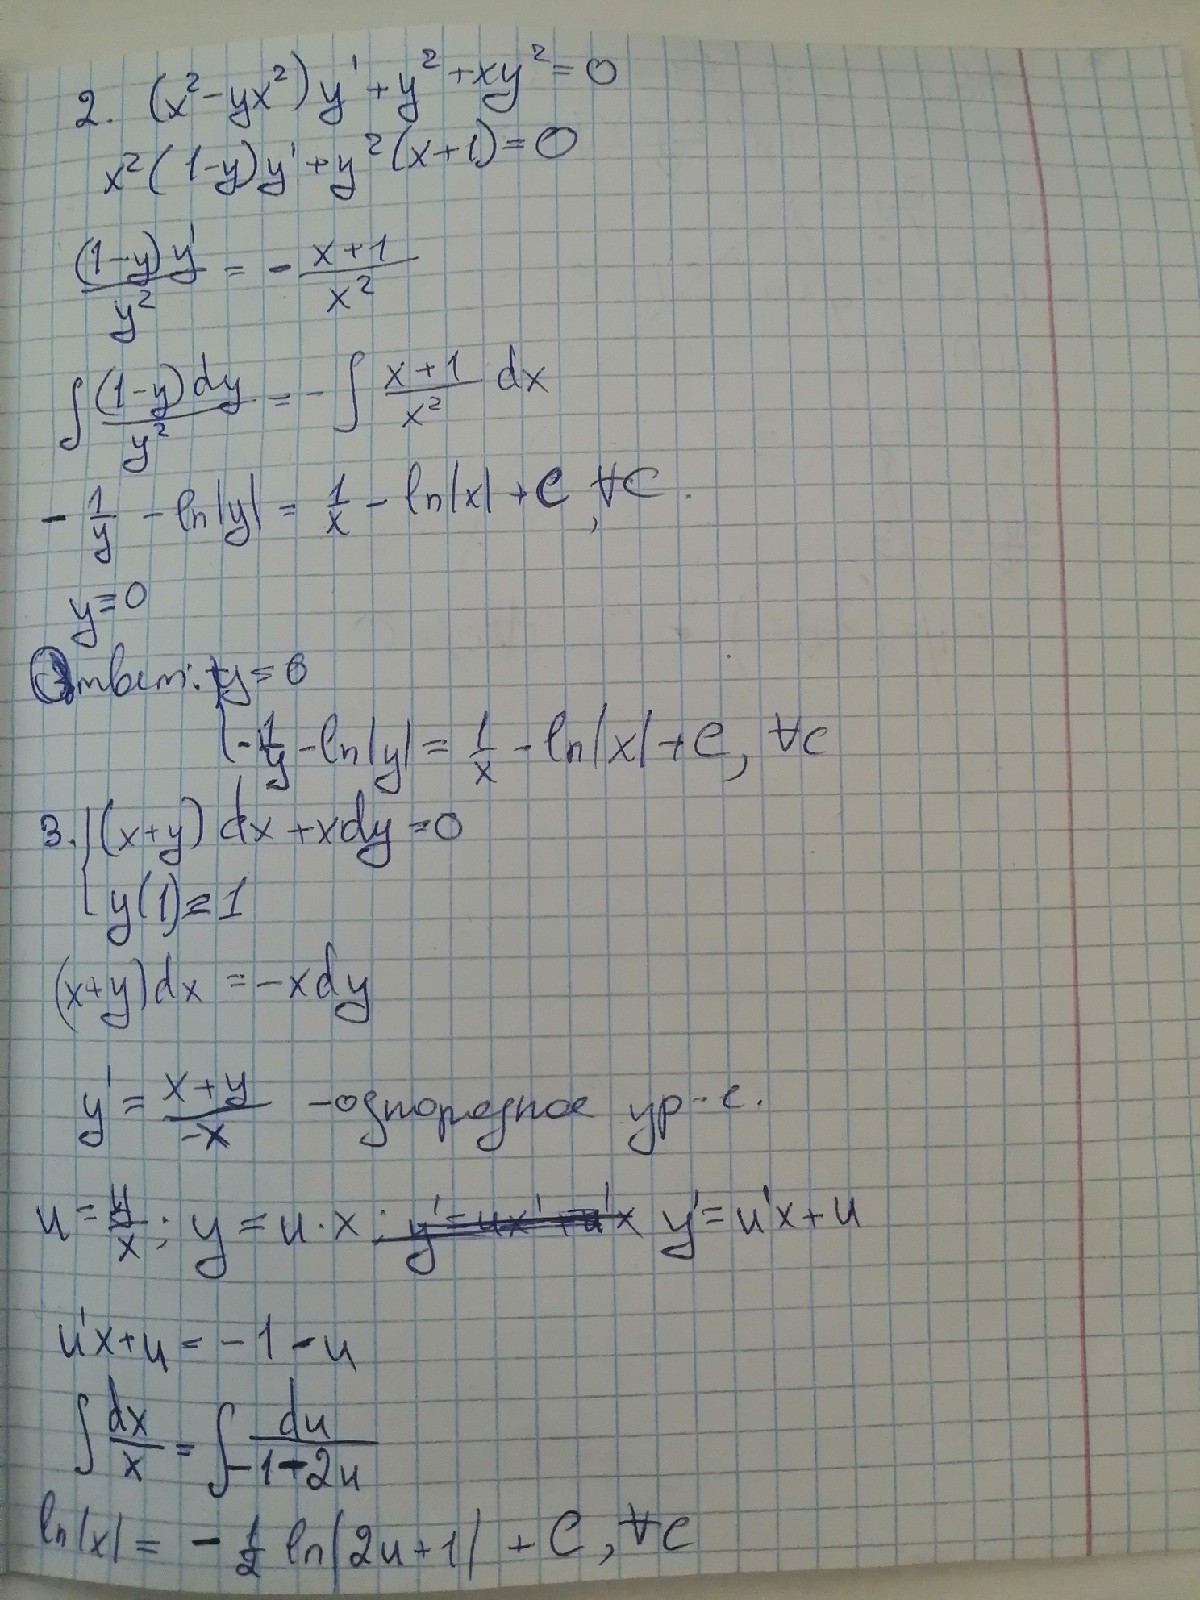 2. (x²-yx²)y'+y²+xy²=0
x²(1-y)y'+y²(x+1)=0
(1-y)y'/y² = -(x+1)/x²
∫(1-y)dy/y² = -∫(x+1)/x² dx
-1/y - ln|y| = 1/x - ln|x| + C, ∀C.
y=0
Ответ: y=0
-1/y - ln|y| = 1/x - ln|x| + C, ∀C
3. {(x+y)dx+xdy=0
y(1)=1
(x+y)dx = -xdy
y' = (x+y)/(-x) - однородное ур-е.
u = y/x; y = u·x; y'=ux'+u'x y'=u'x+u
u'x+u = -1-u
∫dx/x = ∫du/(-1-2u)
ln|x| = -1/2 ln|2u+1| + C, ∀C